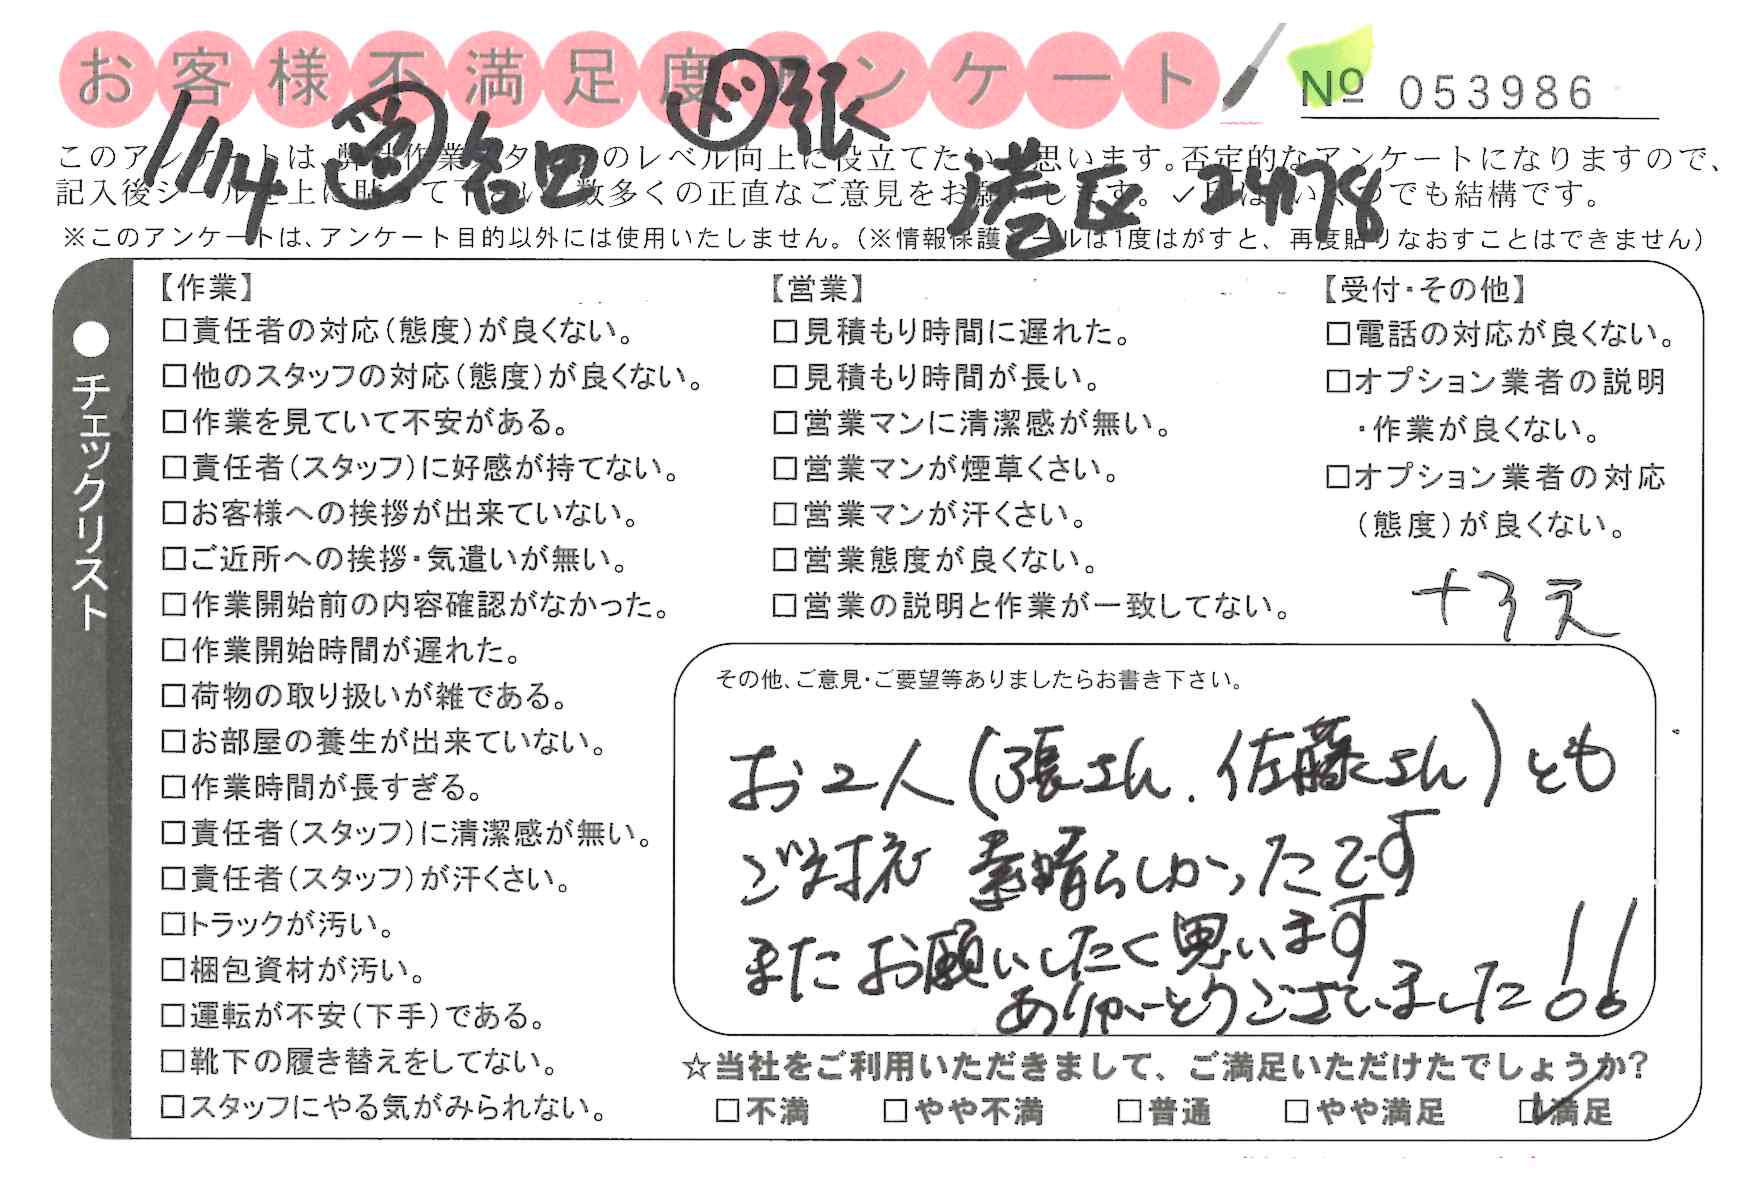 お客様不満足度アンケート
No 053986
1/14 営 名田 ド 張
港区 2478
このアンケートは、弊社作業スタッフのレベル向上に役立てたいと思います。否定的なアンケートになりますので、
記入後シールを上に貼って下さい。数多くの正直なご意見をお願いします。✓印はいくつでも結構です。
※このアンケートは、アンケート目的以外には使用いたしません。(※情報保護シールは1度はがすと、再度貼りなおすことはできません)
●チェックリスト
【作業】
□責任者の対応(態度)が良くない。
□他のスタッフの対応(態度)が良くない。
□作業を見ていて不安がある。
□責任者(スタッフ)に好感が持てない。
□お客様への挨拶が出来ていない。
□ご近所への挨拶・気遣いが無い。
□作業開始前の内容確認がなかった。
□作業開始時間が遅れた。
□荷物の取り扱いが雑である。
□お部屋の養生が出来ていない。
□作業時間が長すぎる。
□責任者(スタッフ)に清潔感が無い。
□責任者(スタッフ)が汗くさい。
□トラックが汚い。
□梱包資材が汚い。
□運転が不安(下手)である。
□靴下の履き替えをしてない。
□スタッフにやる気がみられない。
【営業】
□見積もり時間に遅れた。
□見積もり時間が長い。
□営業マンに清潔感が無い。
□営業マンが煙草くさい。
□営業マンが汗くさい。
□営業態度が良くない。
□営業の説明と作業が一致してない。
【受付・その他】
□電話の対応が良くない。
□オプション業者の説明
・作業が良くない。
□オプション業者の対応
(態度)が良くない。
その他、ご意見・ご要望等ありましたらお書き下さい。
お2人(張さん、佐藤さん)とも
ご対応 素晴らしかったです
またお願いしたく思います
ありがとうございました!!
☆当社をご利用いただきまして、ご満足いただけたでしょうか?
□不満 □やや不満 □普通 □やや満足 ☑満足